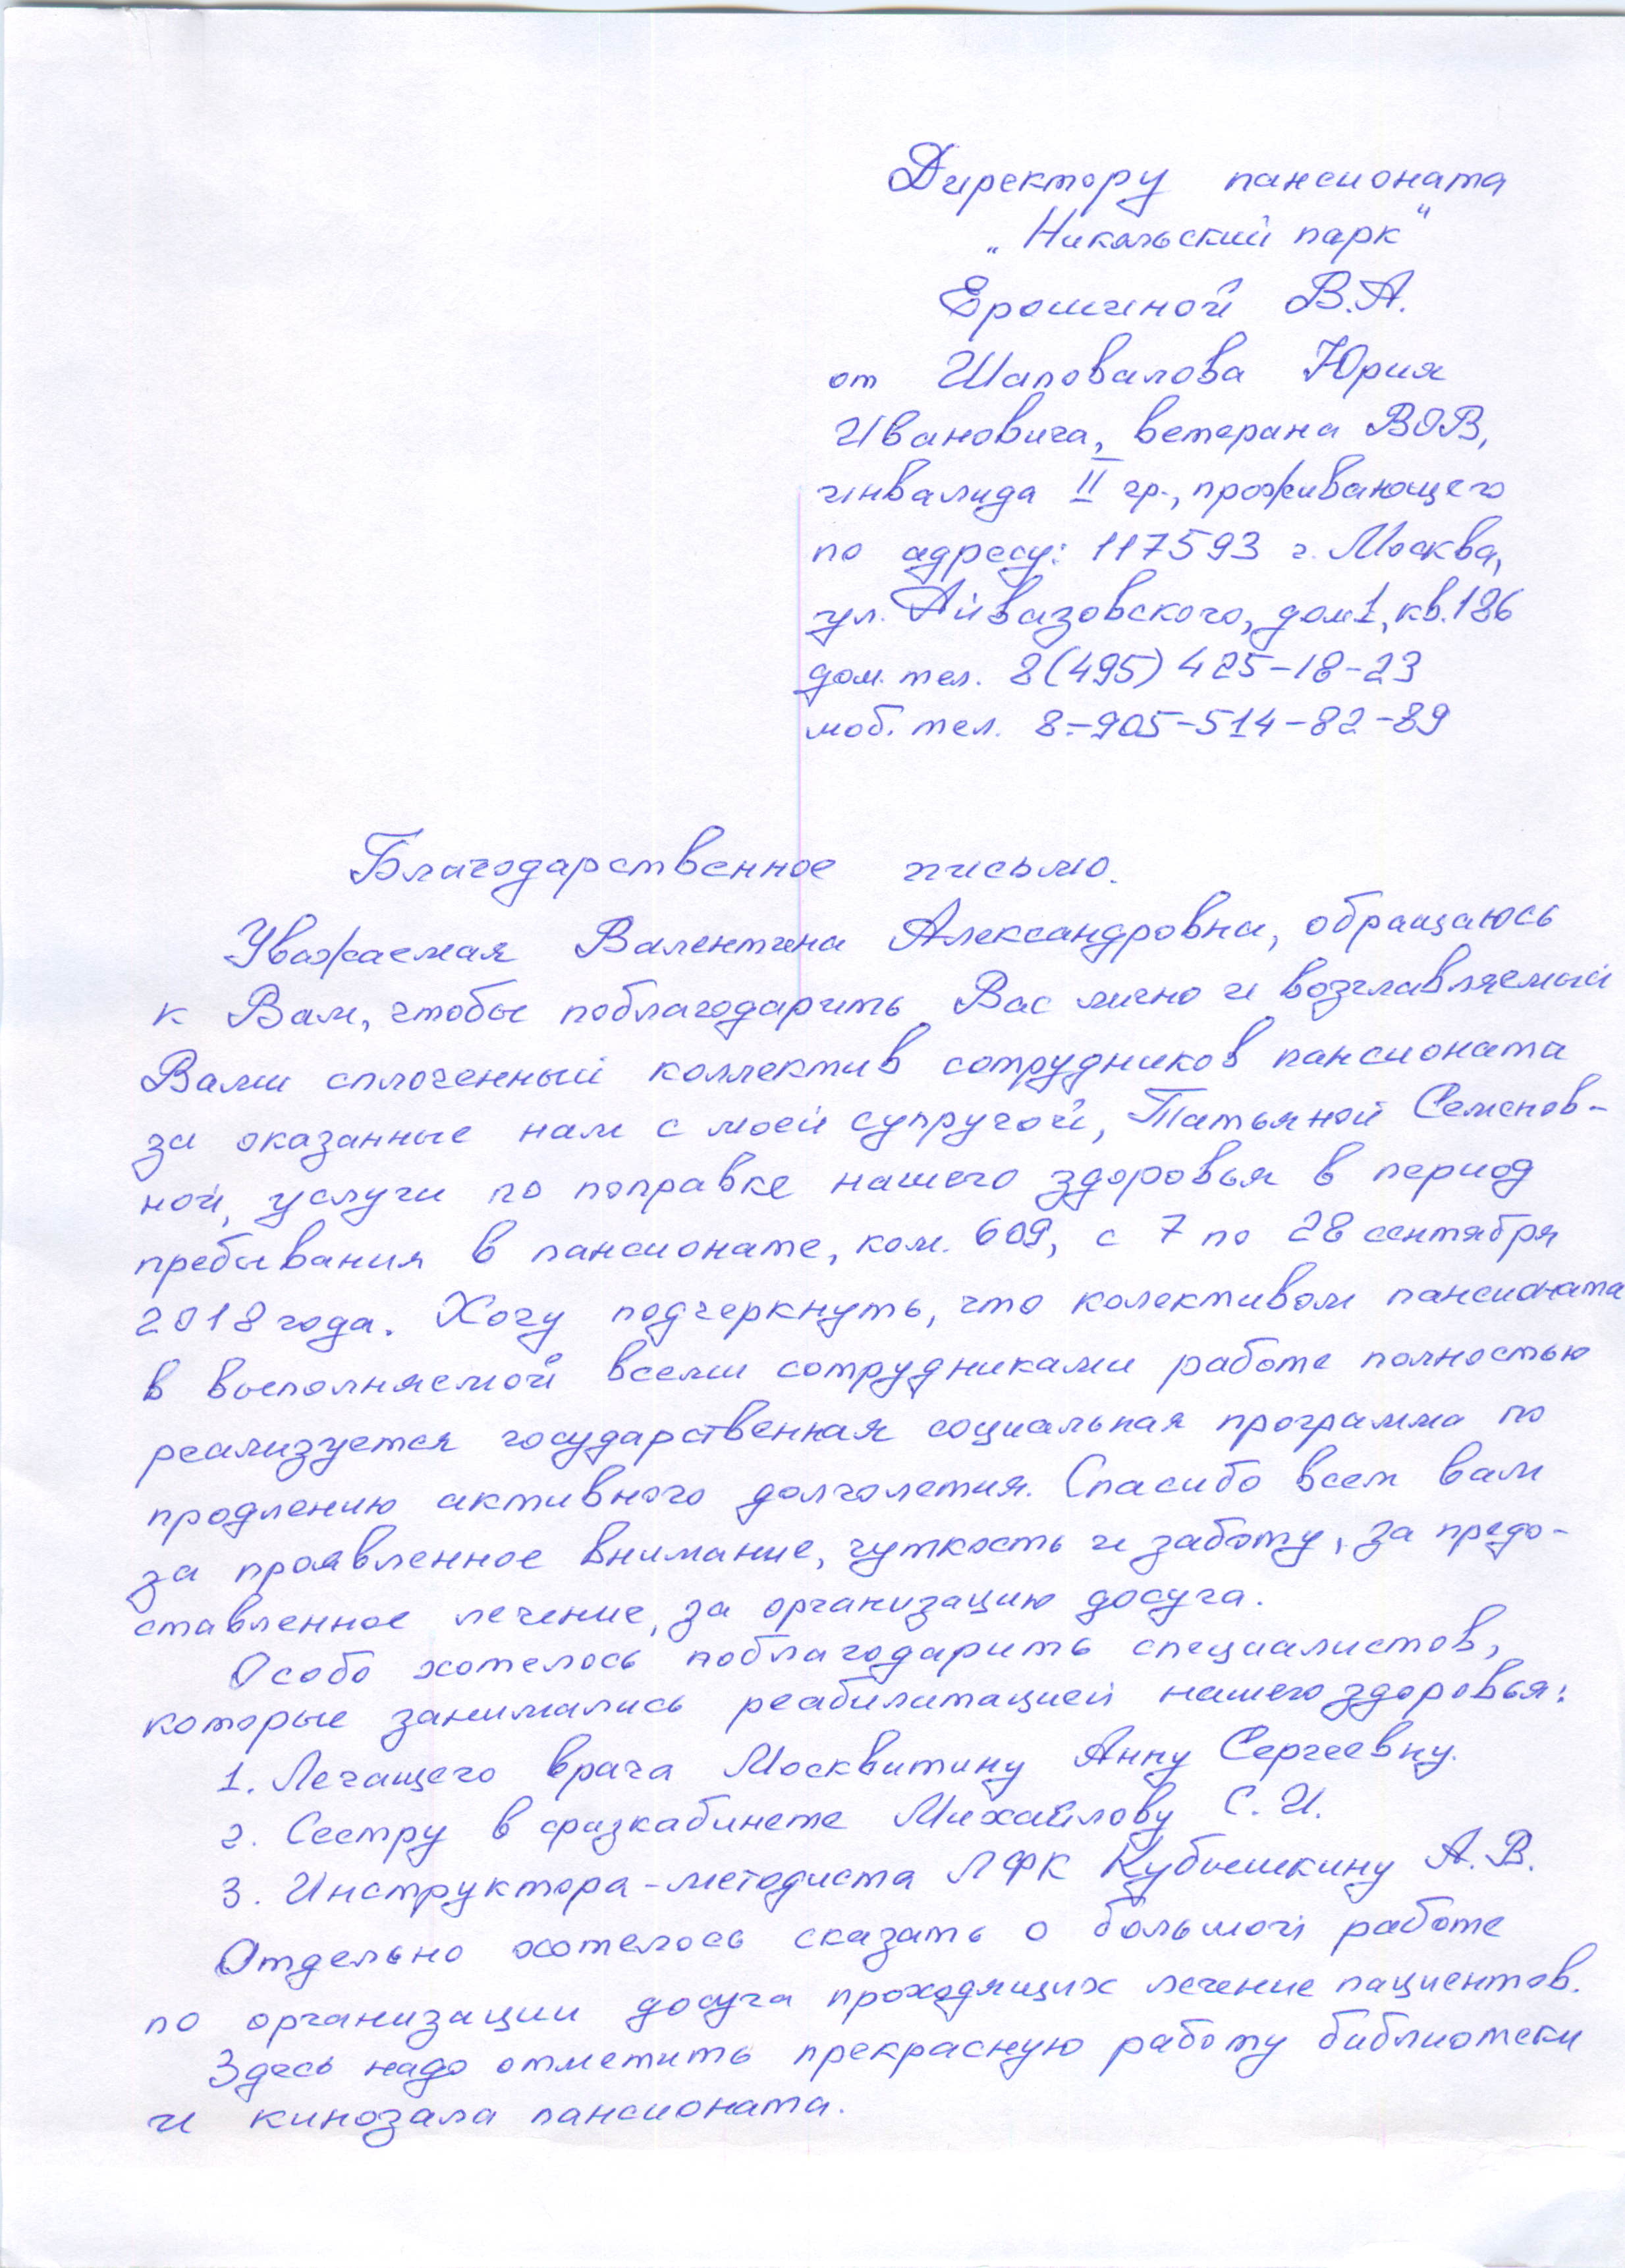 Директору пансионата
„Никольский парк"
Ерошиной В.А.
от Шаповалова Юрия
Ивановича, ветерана ВОВ,
инвалида II гр., проживающего
по адресу: 117593 г. Москва,
ул. Айвазовского, дом 1, кв. 186
дом. тел. 8(495) 425-18-23
моб. тел. 8-905-514-82-89
Благодарственное письмо.
Уважаемая Валентина Александровна, обращаюсь
к Вам, чтобы поблагодарить Вас лично и возглавляемый
Вами сплоченный коллектив сотрудников пансионата
за оказанные нам с моей супругой, Татьяной Семенов-
ной, услуги по поправке нашего здоровья в период
пребывания в пансионате, ком. 609, с 7 по 28 сентября
2018 года. Хочу подчеркнуть, что колективом пансионата
в выполняемой всеми сотрудниками работе полностью
реализуется государственная социальная программа по
продлению активного долголетия. Спасибо всем вам
за проявленное внимание, чуткость и заботу, за предо-
ставленное лечение, за организацию досуга.
Особо хотелось поблагодарить специалистов,
которые занимались реабилитацией нашего здоровья:
1. Лечащего врача Москвитину Анну Сергеевну.
2. Сестру в физкабинете Михайлову С.И.
3. Инструктора-методиста ЛФК Кубышкину А.В.
Отдельно хотелось сказать о большой работе
по организации досуга проходящих лечение пациентов.
Здесь надо отметить прекрасную работу библиотеки
и кинозала пансионата.